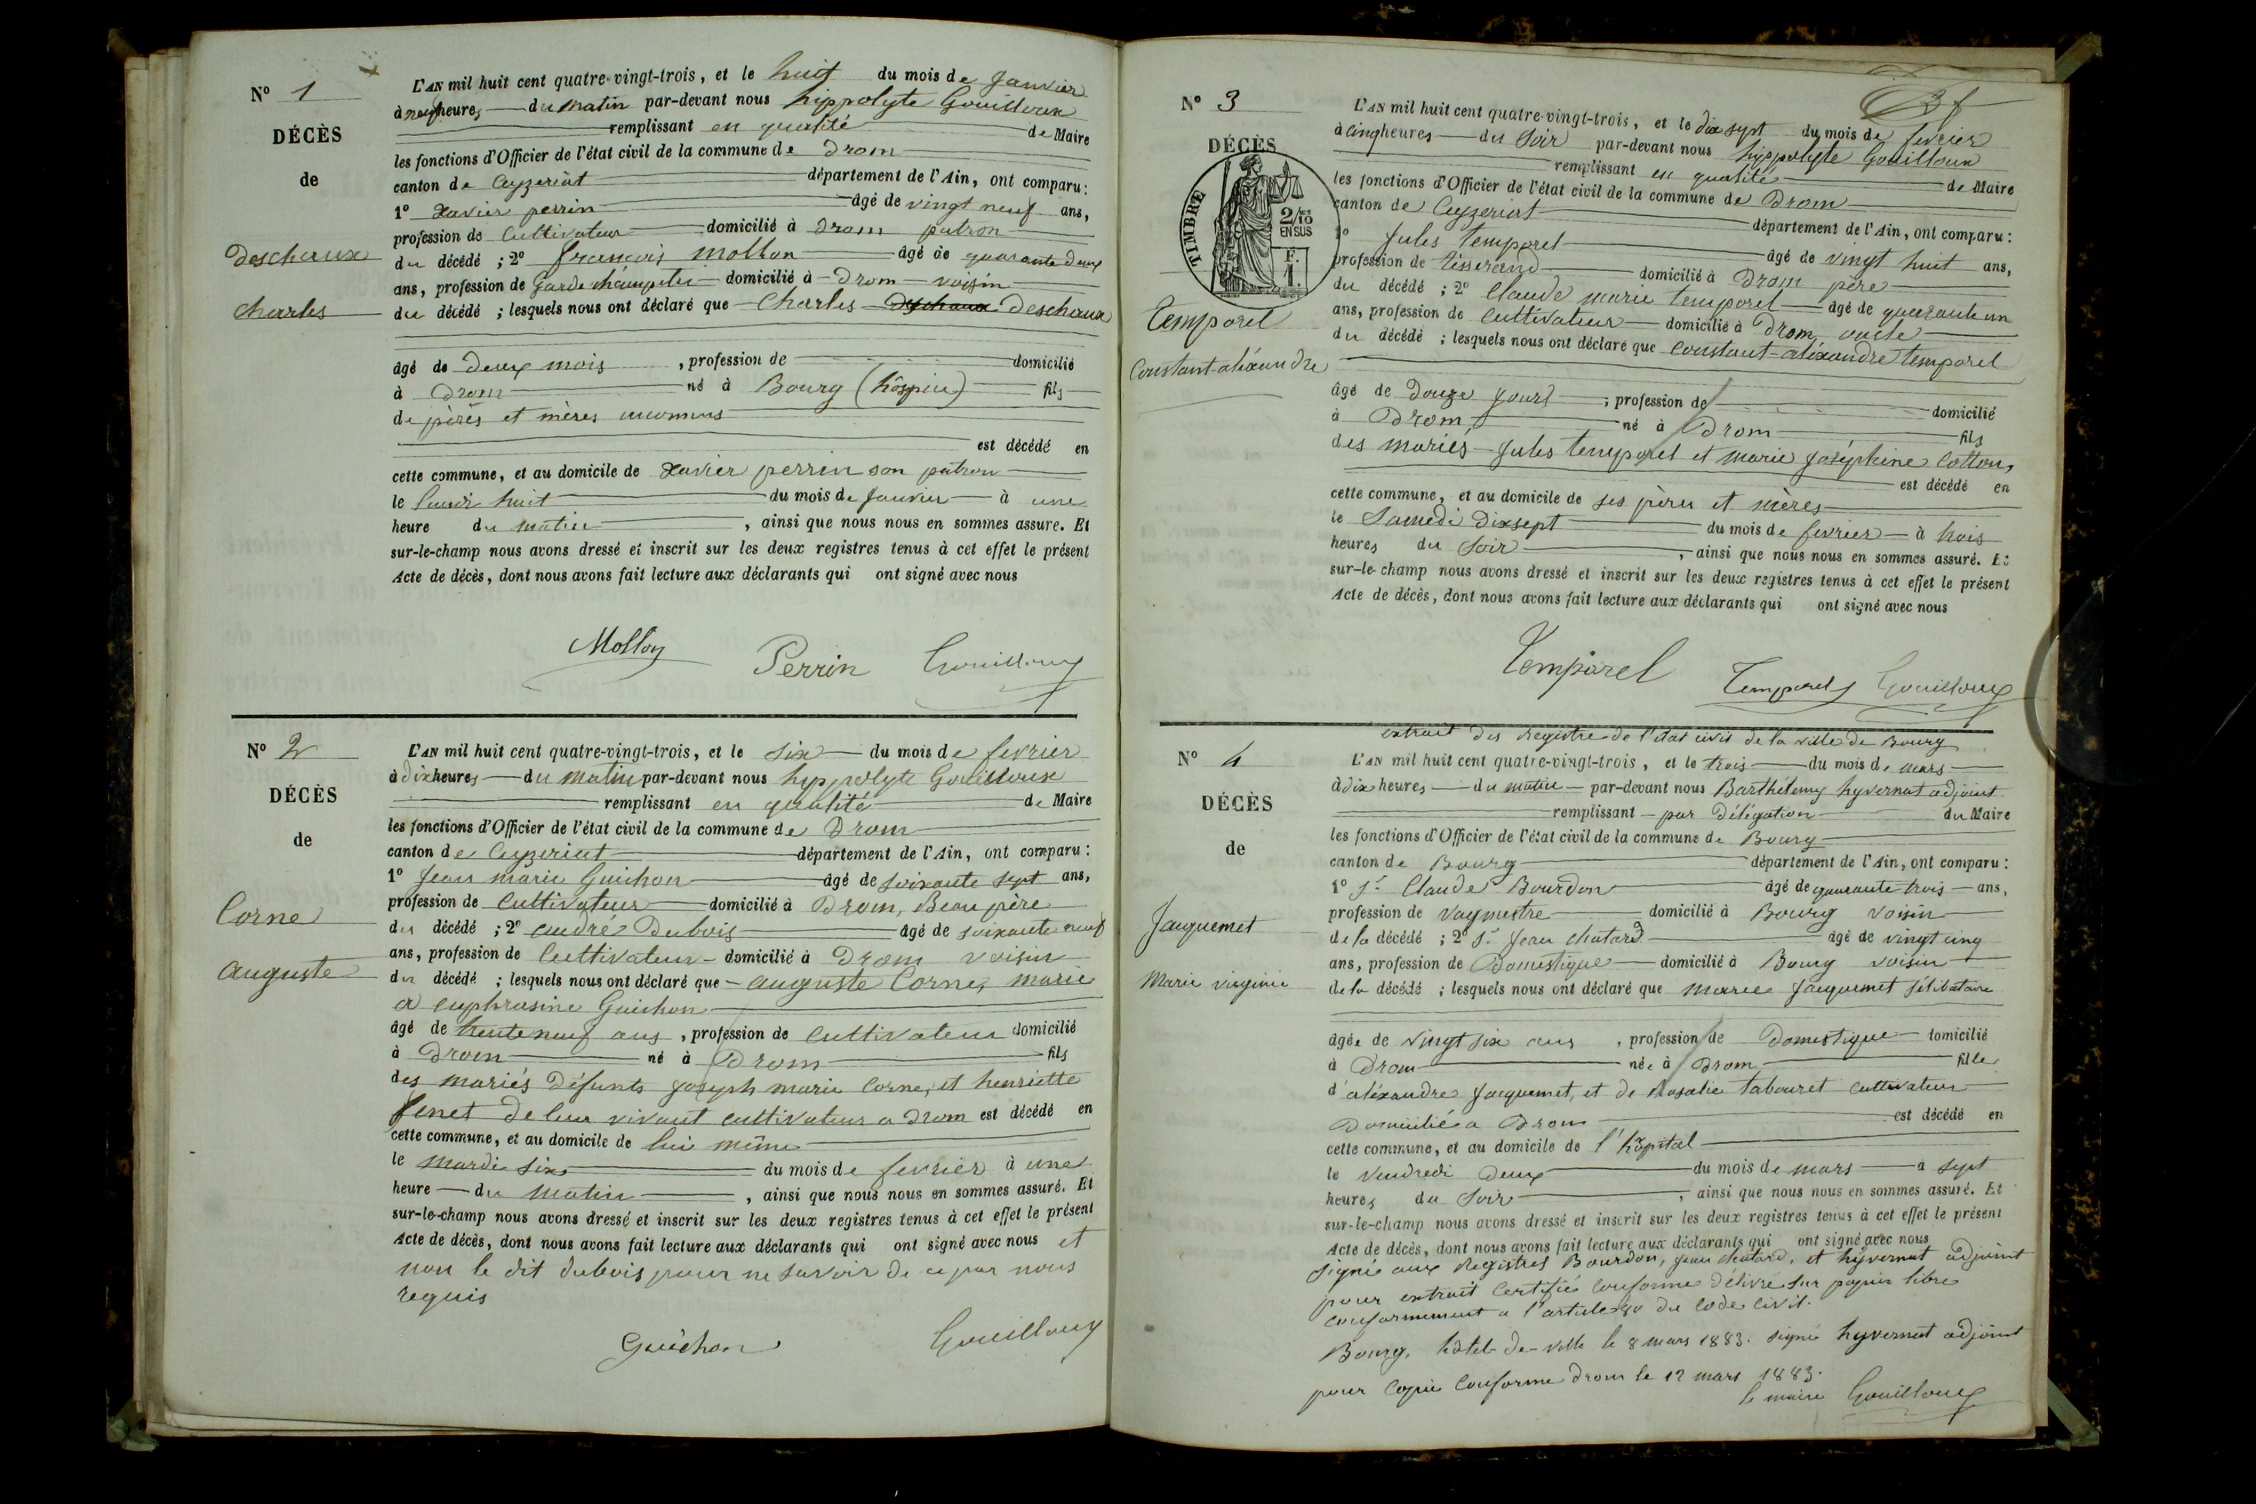 N° 1
DÉCÈS
de
Deschaux
Charles
L'AN mil huit cent quatre-vingt-trois, et le huit du mois de Janvier
à neuf heures du matin par-devant nous hippolyte Gouilloux
remplissant en qualité de Maire
les fonctions d'Officier de l'état civil de la commune de Drom
canton de Ceyzeriat département de l'Ain, ont comparu :
1° Xavier perrin âgé de vingt neuf ans,
profession de Cultivateur domicilié à Drom patron
du décédé ; 2° françois Mollon âgé de quarante deux
ans, profession de Garde champetre domicilié à Drom voisin
du décédé ; lesquels nous ont déclaré que Charles Deschaux Deschaux
âgé de Deux mois , profession de domicilié
à Drom né à Bourg (hospice) fils
de pères et mères inconnus
est décédé en
cette commune, et au domicile de Xavier perrin son patron
le lundi huit du mois de Janvier à une
heure du matin , ainsi que nous nous en sommes assuré. Et
sur-le-champ nous avons dressé et inscrit sur les deux registres tenus à cet effet le présent
Acte de décès, dont nous avons fait lecture aux déclarants qui ont signé avec nous
Mollon Perrin Gouilloux
N° 2
DÉCÈS
de
Corne
auguste
L'AN mil huit cent quatre-vingt-trois, et le six du mois de fevrier
à dix heures du matin par-devant nous hyppolyte Gouilloux
remplissant en qualité de Maire
les fonctions d'Officier de l'état civil de la commune de Drom
canton de Ceyzeriat département de l'Ain, ont comparu :
1° Jean marie Guichon âgé de soixante sept ans,
profession de Cultivateur domicilié à Drom, Beau père
du décédé ; 2° andré Dubois âgé de soixante neuf
ans, profession de Cultivateur domicilié à Drom voisin
du décédé ; lesquels nous ont déclaré que auguste Corne, marie
a euphrasine Guichon
âgé de trente neuf ans , profession de Cultivateur domicilié
à Drom né à Drom fils
des mariés Défunts joseph marie Corne, et henriette
fenet de leur vivant cultivateur a Drom est décédé en
cette commune, et au domicile de lui même
le mardi six du mois de fevrier à une
heure du matin , ainsi que nous nous en sommes assuré. Et
sur-le-champ nous avons dressé et inscrit sur les deux registres tenus à cet effet le présent
Acte de décès, dont nous avons fait lecture aux déclarants qui ont signé avec nous et
non le dit dubois pour ne savoir de ce par nous
requis
Guichon Gouilloux
3
N° 3
DÉCÈS
TIMBRE
2/10
EN SUS
F.
1.
Temporel
Constant-aléxandre
L'AN mil huit cent quatre-vingt-trois, et le dix sept du mois de fevrier
à cinq heures du Soir par-devant nous hyppolyte Gouilloux
remplissant en qualité de Maire
les fonctions d'Officier de l'état civil de la commune de Drom
canton de Ceyzeriat département de l'Ain, ont comparu :
1° Jules temporel âgé de vingt huit ans,
profession de tisserand domicilié à Drom père
du décédé ; 2° Claude marie temporel âgé de quarante un
ans, profession de Cultivateur domicilié à Drom, oncle
du décédé ; lesquels nous ont déclaré que constant-aléxandre temporel
âgé de Douze jours ; profession de domicilié
à Drom né à Drom fils
des mariés Jules temporel et marie joséphine Cotton,
est décédé en
cette commune, et au domicile de ses pères et mères
le Samedi Dixsept du mois de fevrier à trois
heures du Soir , ainsi que nous nous en sommes assuré. Et
sur-le-champ nous avons dressé et inscrit sur les deux registres tenus à cet effet le présent
Acte de décès, dont nous avons fait lecture aux déclarants qui ont signé avec nous
Temporel Temporel Gouilloux
N° 4
DÉCÈS
de
Jauquemet
Marie virginie
extrait des registre de l'état civil de la ville de Bourg
L'AN mil huit cent quatre-vingt-trois, et le trois du mois de mars
à dix heures du matin par-devant nous Barthélemy hyvernat adjoint
remplissant par Délégation du Maire
les fonctions d'Officier de l'état civil de la commune de Bourg
canton de Bourg département de l'Ain, ont comparu :
1° Sr Claude Bourdon âgé de quarante trois ans,
profession de Vaymestre domicilié à Bourg voisin
de la décédé ; 2° Sr Jean chatard âgé de vingt cinq
ans, profession de Domestique domicilié à Bourg voisin
de la décédé ; lesquels nous ont déclaré que Marie Jauquemet Célibataire
âgée de vingt six ans , profession de Domestique domicilié
à Drom née à Drom fille
d'aléxandre Jauquemet, et de Rosalie tabouret cultivateur
Domiciliés a Drom est décédé en
cette commune, et au domicile de l'hôpital
le Vendredi Deux du mois de mars à sept
heures du Soir , ainsi que nous nous en sommes assuré. Et
sur-le-champ nous avons dressé et inscrit sur les deux registres tenus à cet effet le présent
Acte de décès, dont nous avons fait lecture aux déclarants qui ont signé avec nous
signé aux Registres Bourdon, jean chatard, et hyvernat adjoint
pour extrait certifié conforme délivré sur papier libre
conformement a l'article 80 du Code Civil.
Bourg, hôtel-de-ville le 8 mars 1883. signé hyvernat adjoint
pour Copie Conforme Drom le 12 mars 1883.
le maire Gouilloux